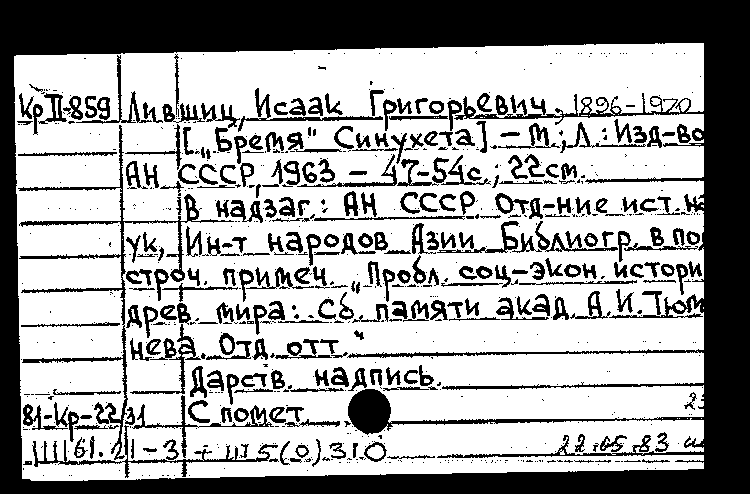 Кр II-859 Лившиц, Исаак Григорьевич, 1896-1970
[„Бремя" Синухета]. - М.; Л.: Изд-во
АН СССР, 1963 - 47-54с.; 22см.
В надзаг.: АН СССР. Отд-ние ист. на
ук, Ин-т народов Азии. Библиогр. в под
строч. примеч. „Пробл. соц.-экон. истори
древ. мира: Сб. памяти акад. А.И.Тюм
нева. Отд. отт."
Дарств. надпись.
81-Кр-22/31 С помет.
61.21-3 + Ш5(0)310 22.05.83